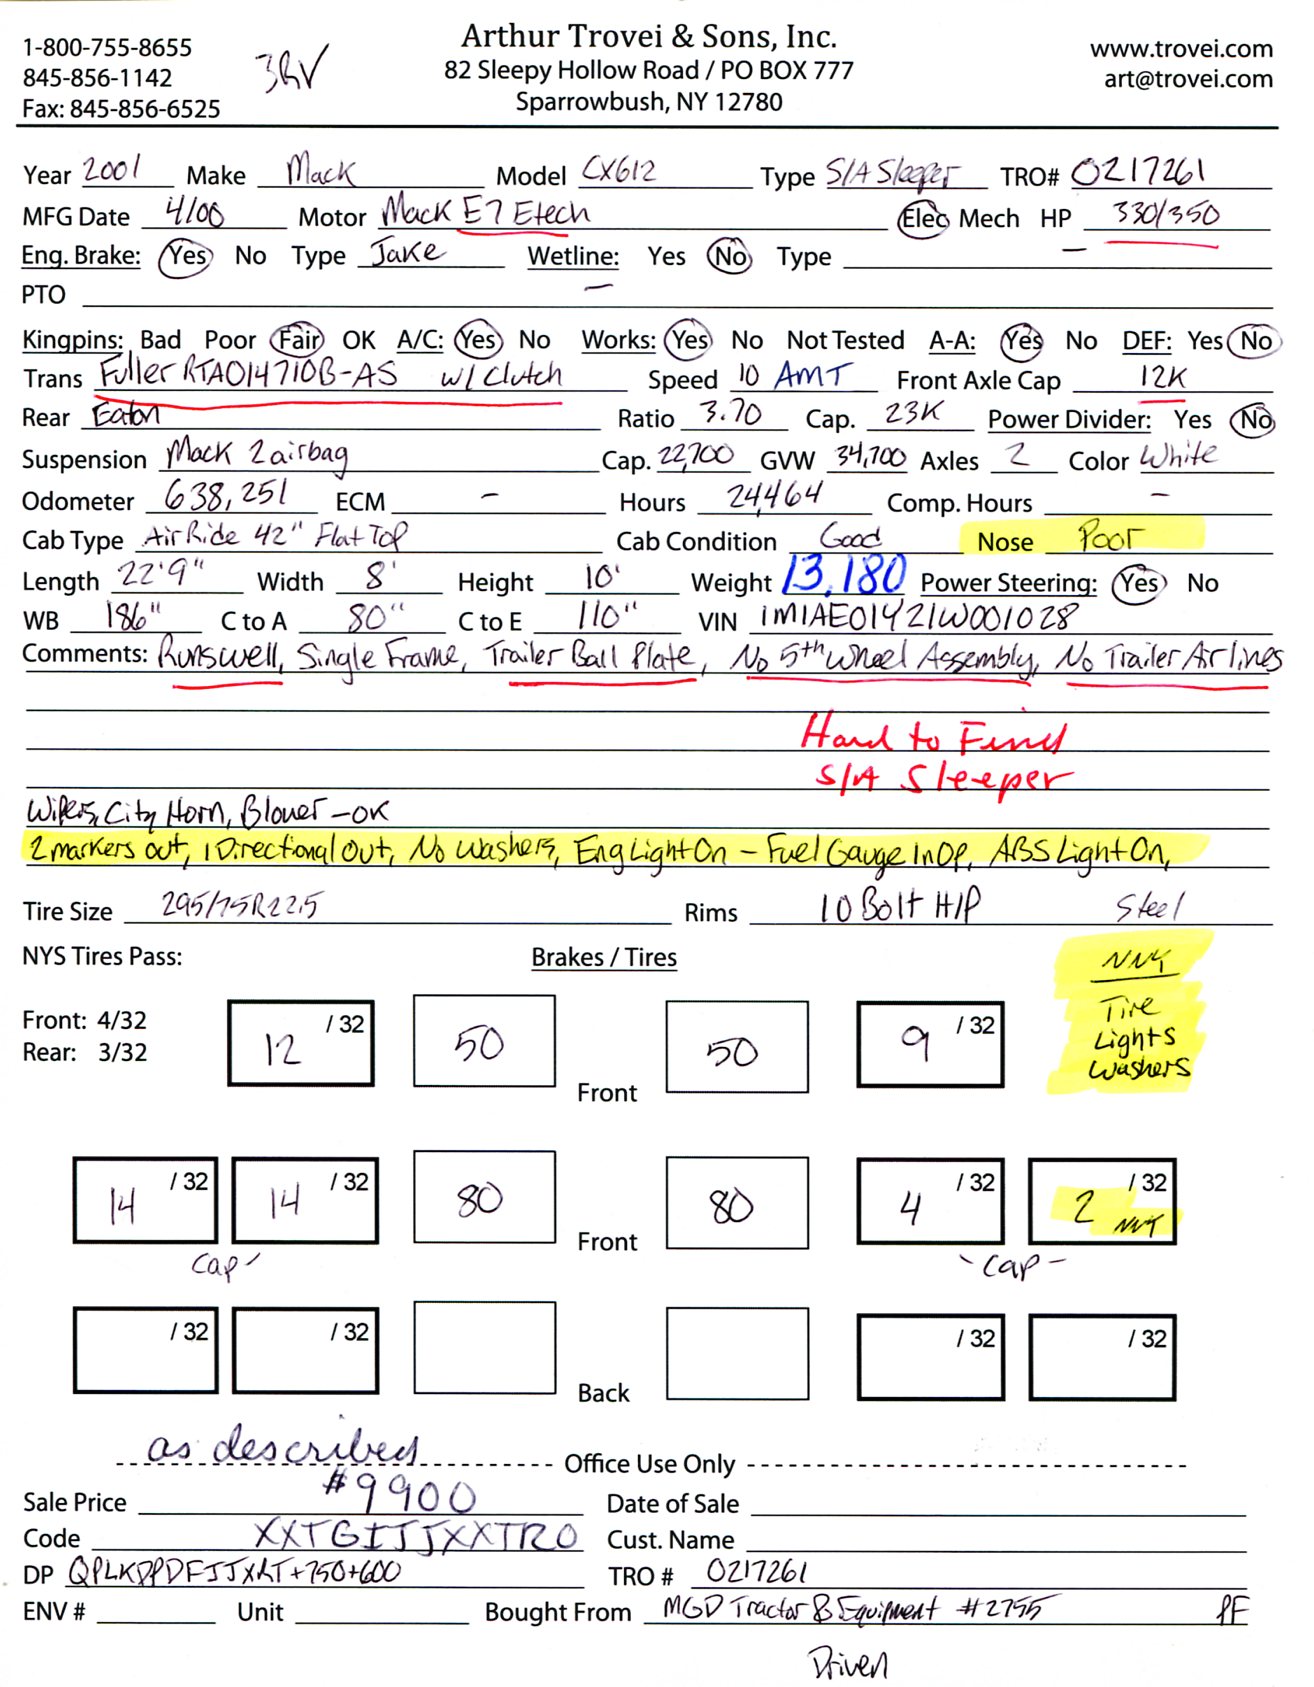 1-800-755-8655
845-856-1142
Fax: 845-856-6525
3RV
Arthur Trovei & Sons, Inc.
82 Sleepy Hollow Road / PO BOX 777
Sparrowbush, NY 12780
www.trovei.com
art@trovei.com
Year 2001 Make Mack Model CX612 Type S/A Sleeper TRO# 0217261
MFG Date 4/00 Motor Mack E7 Etech Elec Mech HP 330/350
Eng. Brake: Yes No Type Jake Wetline: Yes No Type
PTO
Kingpins: Bad Poor Fair OK A/C: Yes No Works: Yes No Not Tested A-A: Yes No DEF: Yes No
Trans Fuller RTAO14710B-AS w/ Clutch Speed 10 AMT Front Axle Cap 12K
Rear Eaton Ratio 3.70 Cap. 23K Power Divider: Yes No
Suspension Mack 2 airbag Cap. 22,700 GVW 34,700 Axles 2 Color White
Odometer 638,251 ECM - Hours 24,464 Comp. Hours -
Cab Type Air Ride 42" Flat Top Cab Condition Good Nose Poor
Length 22'9" Width 8' Height 10' Weight 13,180 Power Steering: Yes No
WB 186" C to A 80" C to E 110" VIN 1M1AE01Y21W001028
Comments: Runswell, Single Frame, Trailer Ball Plate, No 5th Wheel Assembly, No Trailer Airlines
Hard to Find
S/A Sleeper
Wipers, City Horn, Blower - OK
2 markers out, 1 Directional Out, No Washers, Eng Light On - Fuel Gauge InOp, ABS Light On,
Tire Size 295/75R22.5 Rims 10 Bolt H/P Steel
NYS Tires Pass: Brakes / Tires
NNY
Tire
Lights
Washers
Front: 4/32
Rear: 3/32
12 /32 50 Front 50 9 /32
14 /32 14 /32 80 Front 80 4 /32 2 /32 NNY
Cap - - Cap -
/32 /32 Back /32 /32
as described Office Use Only
Sale Price #9900 Date of Sale
Code XXTGIJJXXTRO Cust. Name
DP TRO # 0217261
ENV # Unit Bought From MGD Tractor & Equipment #2755 PF
Driven